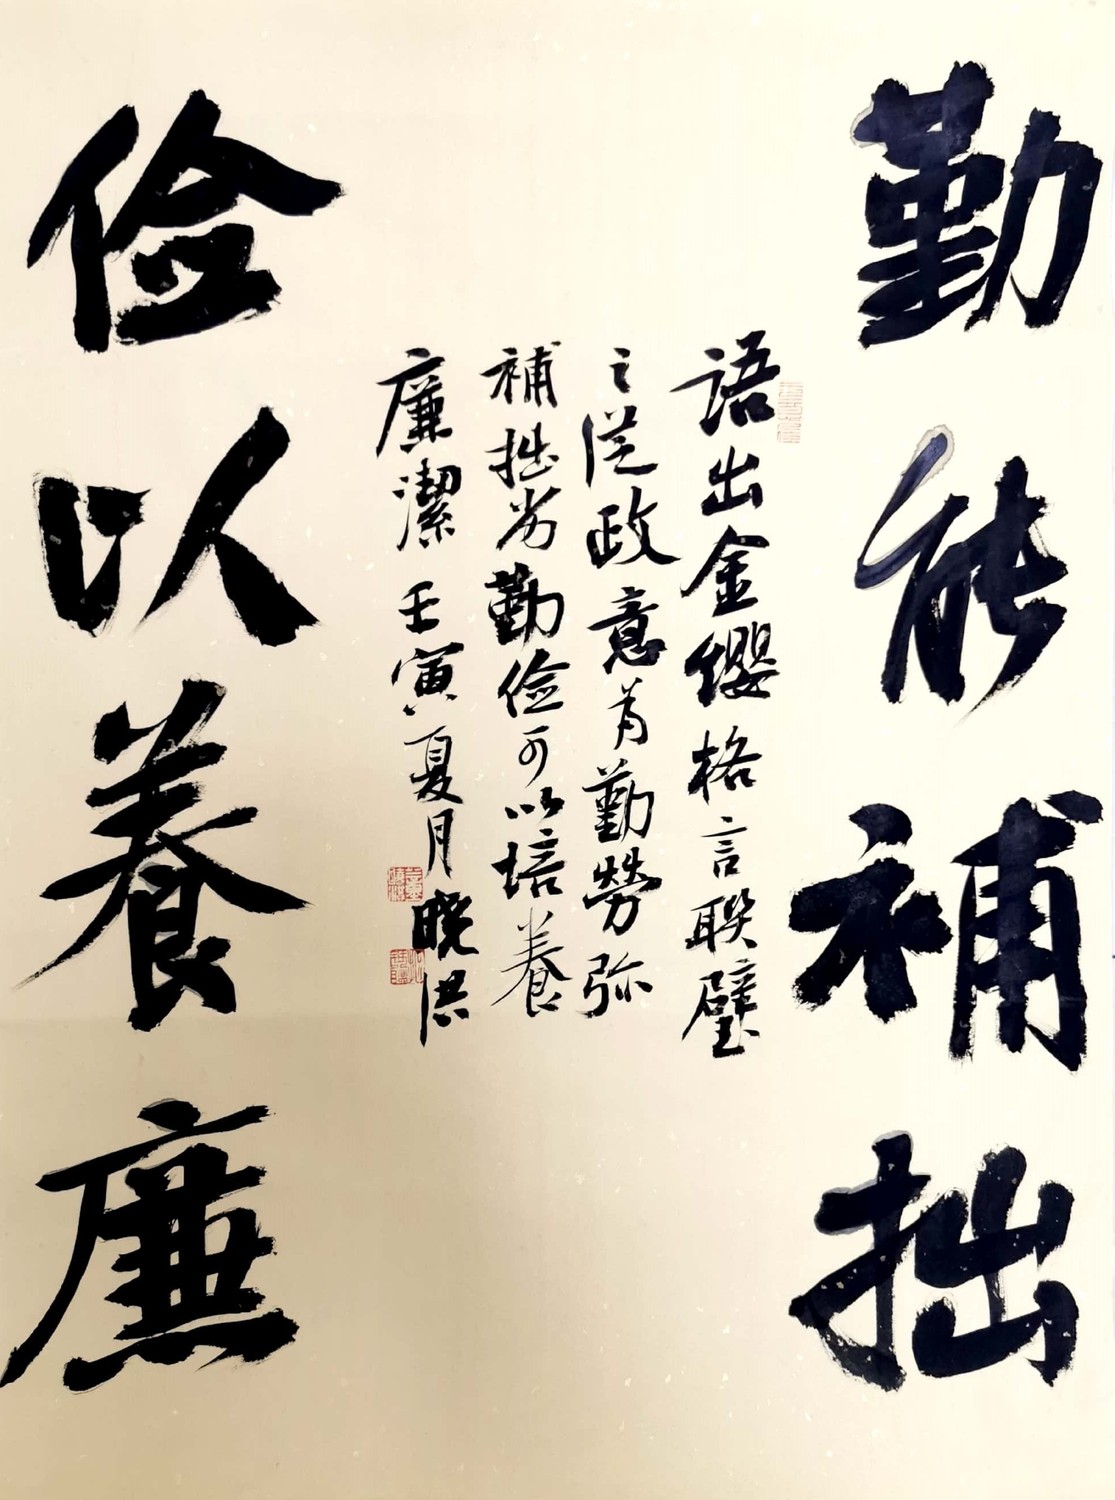 勤能補拙
語出金纓格言聯璧
之從政意爲勤勞弥
補拙劣勤儉可以培養
廉潔 壬寅夏月 曉洪
儉以養廉